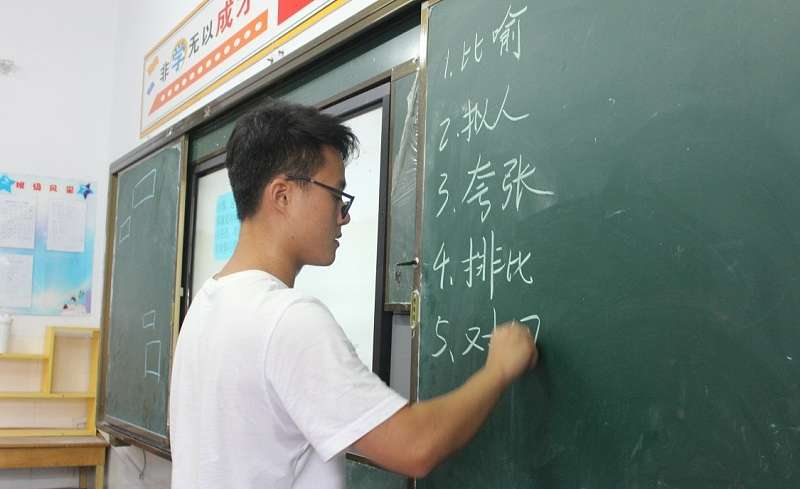 非学无以成才
班级风采
1.比喻
2.拟人
3.夸张
4.排比
5、对